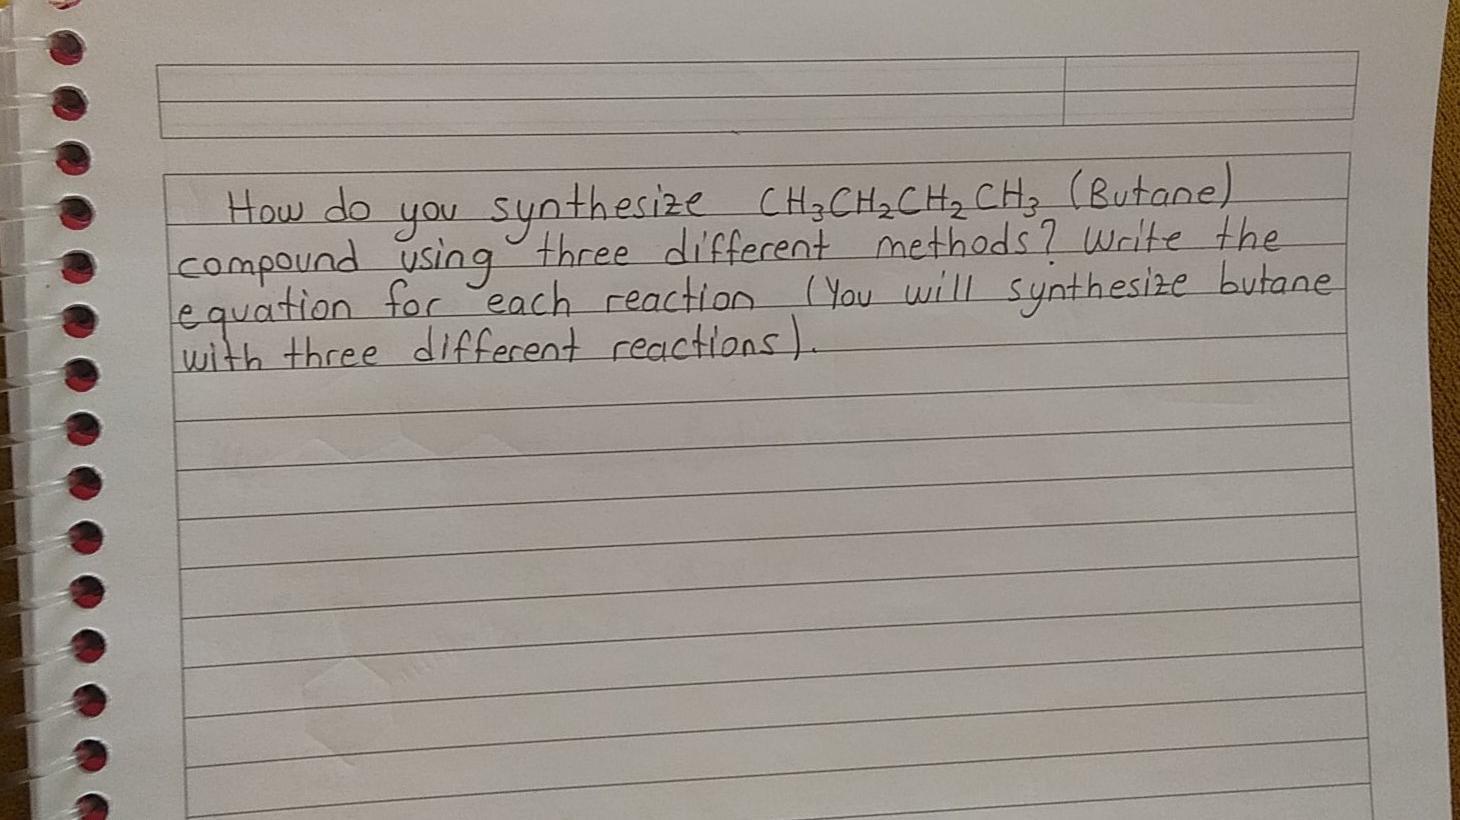 How do you synthesize CH₃CH₂CH₂CH₃ (Butane)
compound using three different methods? Write the
equation for each reaction (You will synthesize butane
with three different reactions).